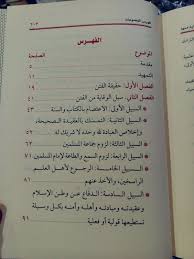 ٢٠٣
الفهرس
الموضوع الصفحة
مقدمة ٥
التمهيد ١١
الفصل الأول: حقيقة الفتن ١٩
الفصل الثاني: سبل الوقاية من الفتن ٥١
السبيل الأولى: الاعتصام بالكتاب والسنة ٥٣
السبيل الثانية: التمسك بالعقيدة الصحيحة،
وإخلاص العبادة لله وحده لا شريك له
السبيل الثالثة: لزوم جماعة المسلمين
السبيل الرابعة: لزوم السمع والطاعة لإمام المسلمين
السبيل الخامسة: الرجوع لأهل العلم
الراسخين، والأخذ عنهم
السبيل السادسة: الدفاع عن وطن الإسلام
وعقيدته ومبادئه وأهله وأمنه بكل وسيلة
تستطيعها قولية أو فعلية ٩١